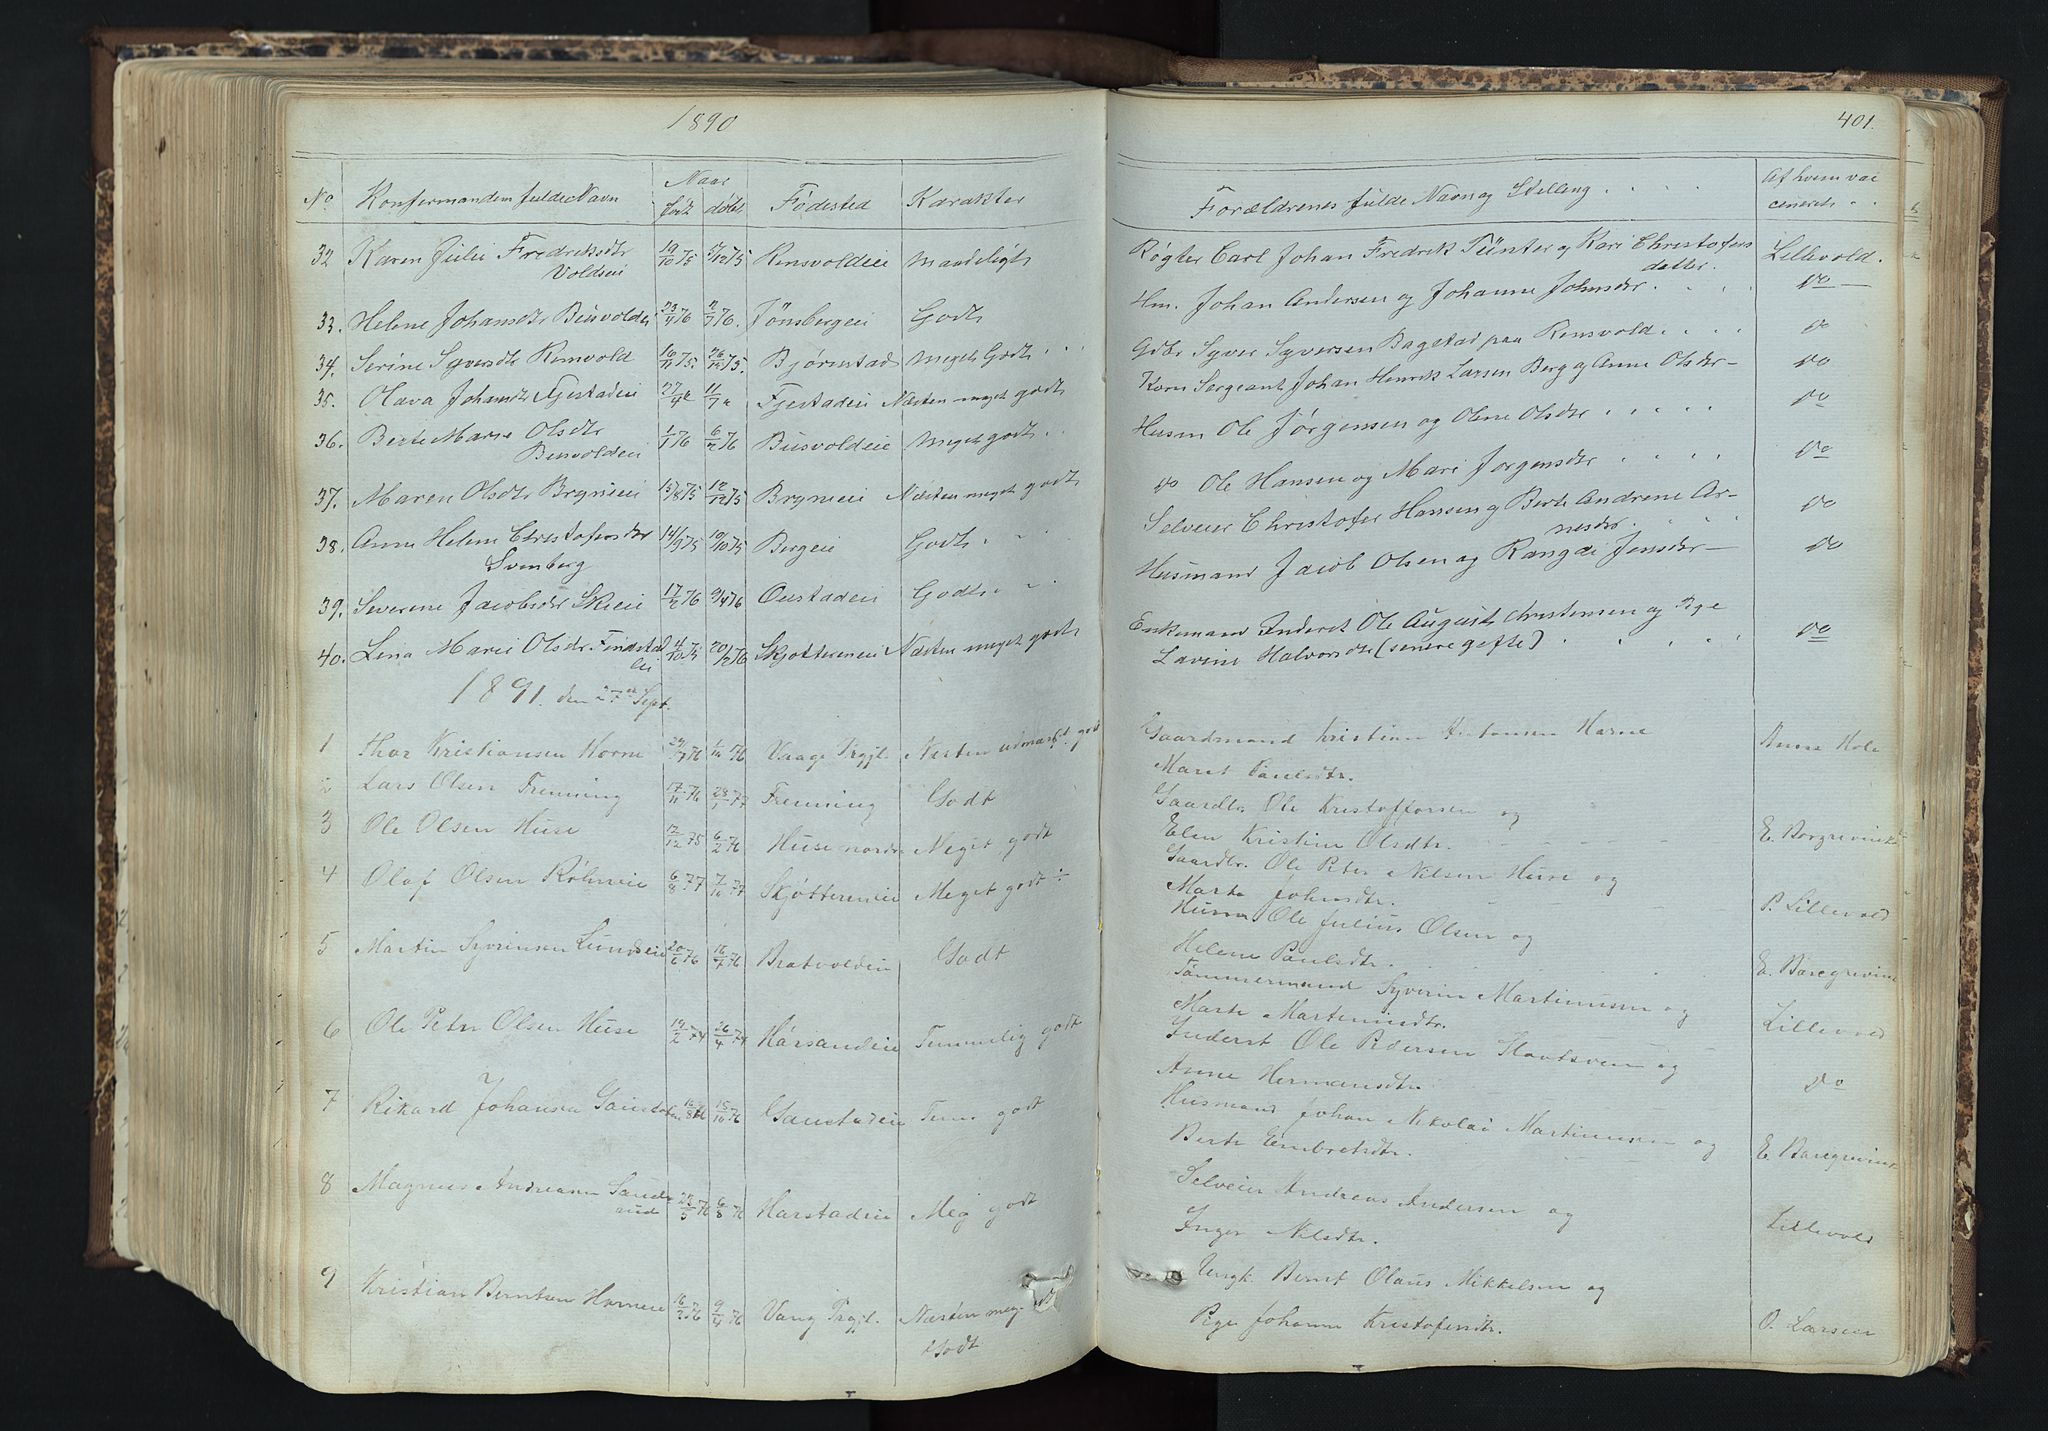 1890
401.
No. Konfirmandens fulde Navn Naar født døbt Fødested Karakter Forældrenes fulde Navn og Stilling Af hvem vaccineret
32 Karen Julie Fredriksdtr 19/10 75 5/12 75 Rensvoldeie Maadeligt Røgter Carl Johan Fredrik Tünter og Kari Christofers Lillevold.
Voldseie datter.
33. Helene Johansdtr Busvoldei 23/4 76 2/7 76. Jønsbergeie Godt Hm. Johan Andersen og Johanne Johnsdtr. do
34. Serine Syversdtr Rensvold 16/11 75. 26/12 75. Bjørnstad Meget Godt Gdbr Syver Syversen Bagstad paa Rensvold do
35. Olava Johansdtr Fjestadeie 27/4 " 11/7 " Fjestadeie Næsten meget godt Korn Sergeant Johan Henrik Larsen Berg og Anne Olsdtr do
36. Berte Marie Olsdtr 1/1 76 6/2 76 Busvoldeie Meget godt Husm Ole Jørgensen og Oline Olsdtr do
Busvoldeie
37. Maren Olsdtr Brynieie 15/8 75 12/12 75 Brynieie Næsten meget godt do Ole Hansen og Mari Jørgensdtr do
38. Anne Helene Christofersdtr 14/9 75 10/10 75 Bergeie Godt Selveier Christofer Hansen og Berte Andrene Ar-
Svenberg nesdtr. do
39. Severene Jacobsdtr Skieie 17/2 76 9/4 76 Oustadeie Godt Husmand Jacob Olsen og Rangdi Jensdtr do
40. Lina Marie Olsdr Findstad 4/10 75 20/2 76 Skjøttereneie Næsten meget godt Enkemand Inderst Ole August Christensen og Pige
eie Lavine Halvorsdtr (senere gifte) do
1891. den 27de Sept.
1 Thor Kristiansen Horne 29/7 76 1/10 76 Vaage Prgjl. Næsten udmærket godt Gaardmand Kristian Antonsen Horne
Marit Paulsdtr. Anne Hole
2 Lars Olsen Frenning 17/11 76 28/1 77 Frenning Godt Gaardbr. Ole Kristoffersen og
Elen Kristine Olsdtr. E. Borgrevink
3 Ole Olsen Huse 12/12 75 6/2 76 Huse nordre Meget godt Gaardbr. Ole Peter Nilsen Huse og
Marte Johnsdtr. P. Lillevold
4 Olaf Olsen Røhneie 6/8 77 7/10 77 Skjøttereneie Meget godt ÷ Husm Ole Julius Olsen og
Helene Paulsdtr. E. Boregrevink
5 Martin Syvrinsen Lundseie 20/6 76 16/7 76 Bratvoldeie Godt Tømmermand Syverin Martinusen og
Marte Martinusdtr. Lillevold
6 Ole Peter Olsen Huse 19/2 74 26/4 74 Hørsandeie Temmelig godt Inderst Ole Pedersen Slaatsveen og
Anne Hermansdtr. do
7 Rikard Johansen Gaustadeie 16/8 76 15/10 76 Gaustadeie Tem. godt Husmand Johan Nikolai Martinusen og
Berte Embretsdtr. E. Boregrevink
8 Magnus Andreasen Sande 28/5 76 6/8 76 Harstadeie Meg godt Selveier Andreas Andersen og
rud Inger Nilsdtr. Lillevold
9 Kristian Berntsen Horneeie 16/2 76 9/4 76 Vang Prgjl. Næsten meg. Ungk. Bernt Olaus Mikkelsen og
Godt Pige Johanne Kristofersdtr. O. Larsen